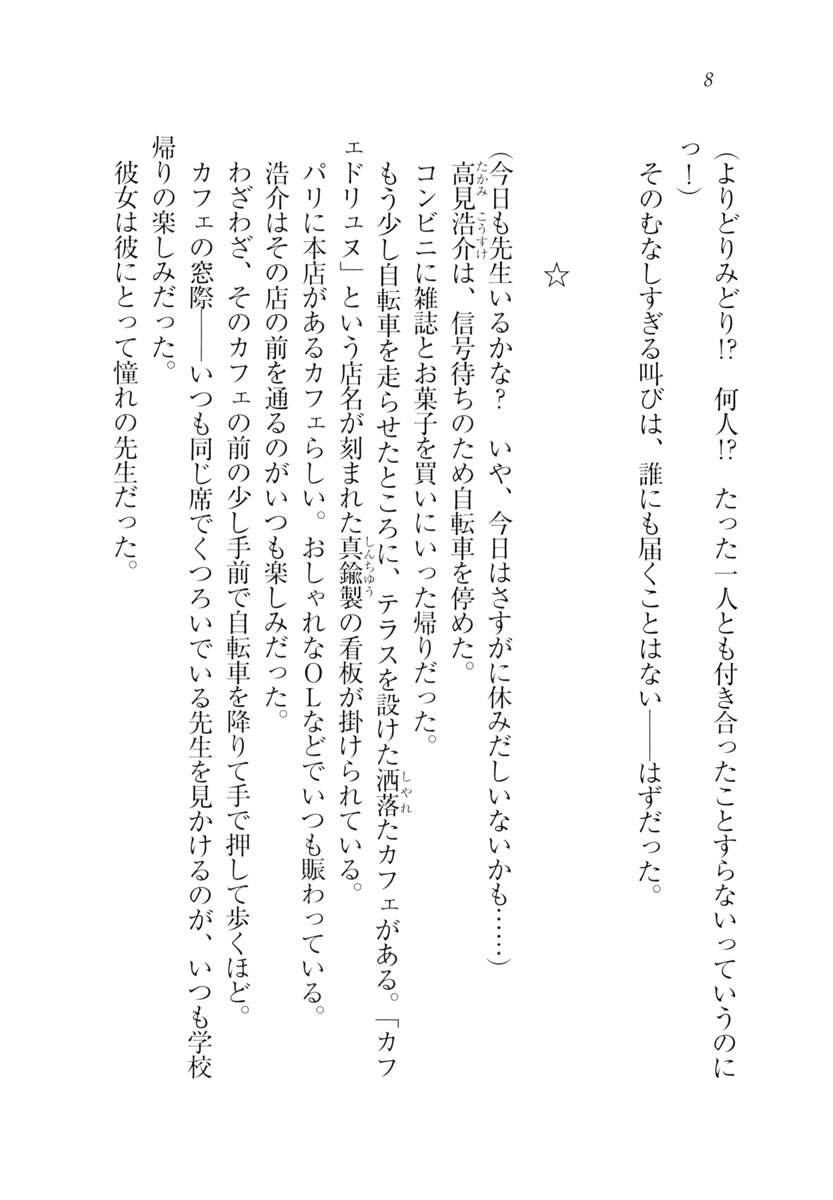 8
（よりどりみどり!?　何人!?　たった一人とも付き合ったことすらないっていうのに
っ！）
そのむなしすぎる叫びは、誰にも届くことはない――はずだった。
☆
（今日も先生いるかな？　いや、今日はさすがに休みだしいないかも……）
たかみ こうすけ
高見浩介は、信号待ちのため自転車を停めた。
コンビニに雑誌とお菓子を買いにいった帰りだった。
しゃれ
もう少し自転車を走らせたところに、テラスを設けた洒落たカフェがある。「カフ
しんちゆう
ェドリュヌ」という店名が刻まれた真鍮製の看板が掛けられている。
パリに本店があるカフェらしい。おしゃれなＯＬなどでいつも賑わっている。
浩介はその店の前を通るのがいつも楽しみだった。
わざわざ、そのカフェの前の少し手前で自転車を降りて手で押して歩くほど。
カフェの窓際――いつも同じ席でくつろいでいる先生を見かけるのが、いつも学校
帰りの楽しみだった。
彼女は彼にとって憧れの先生だった。